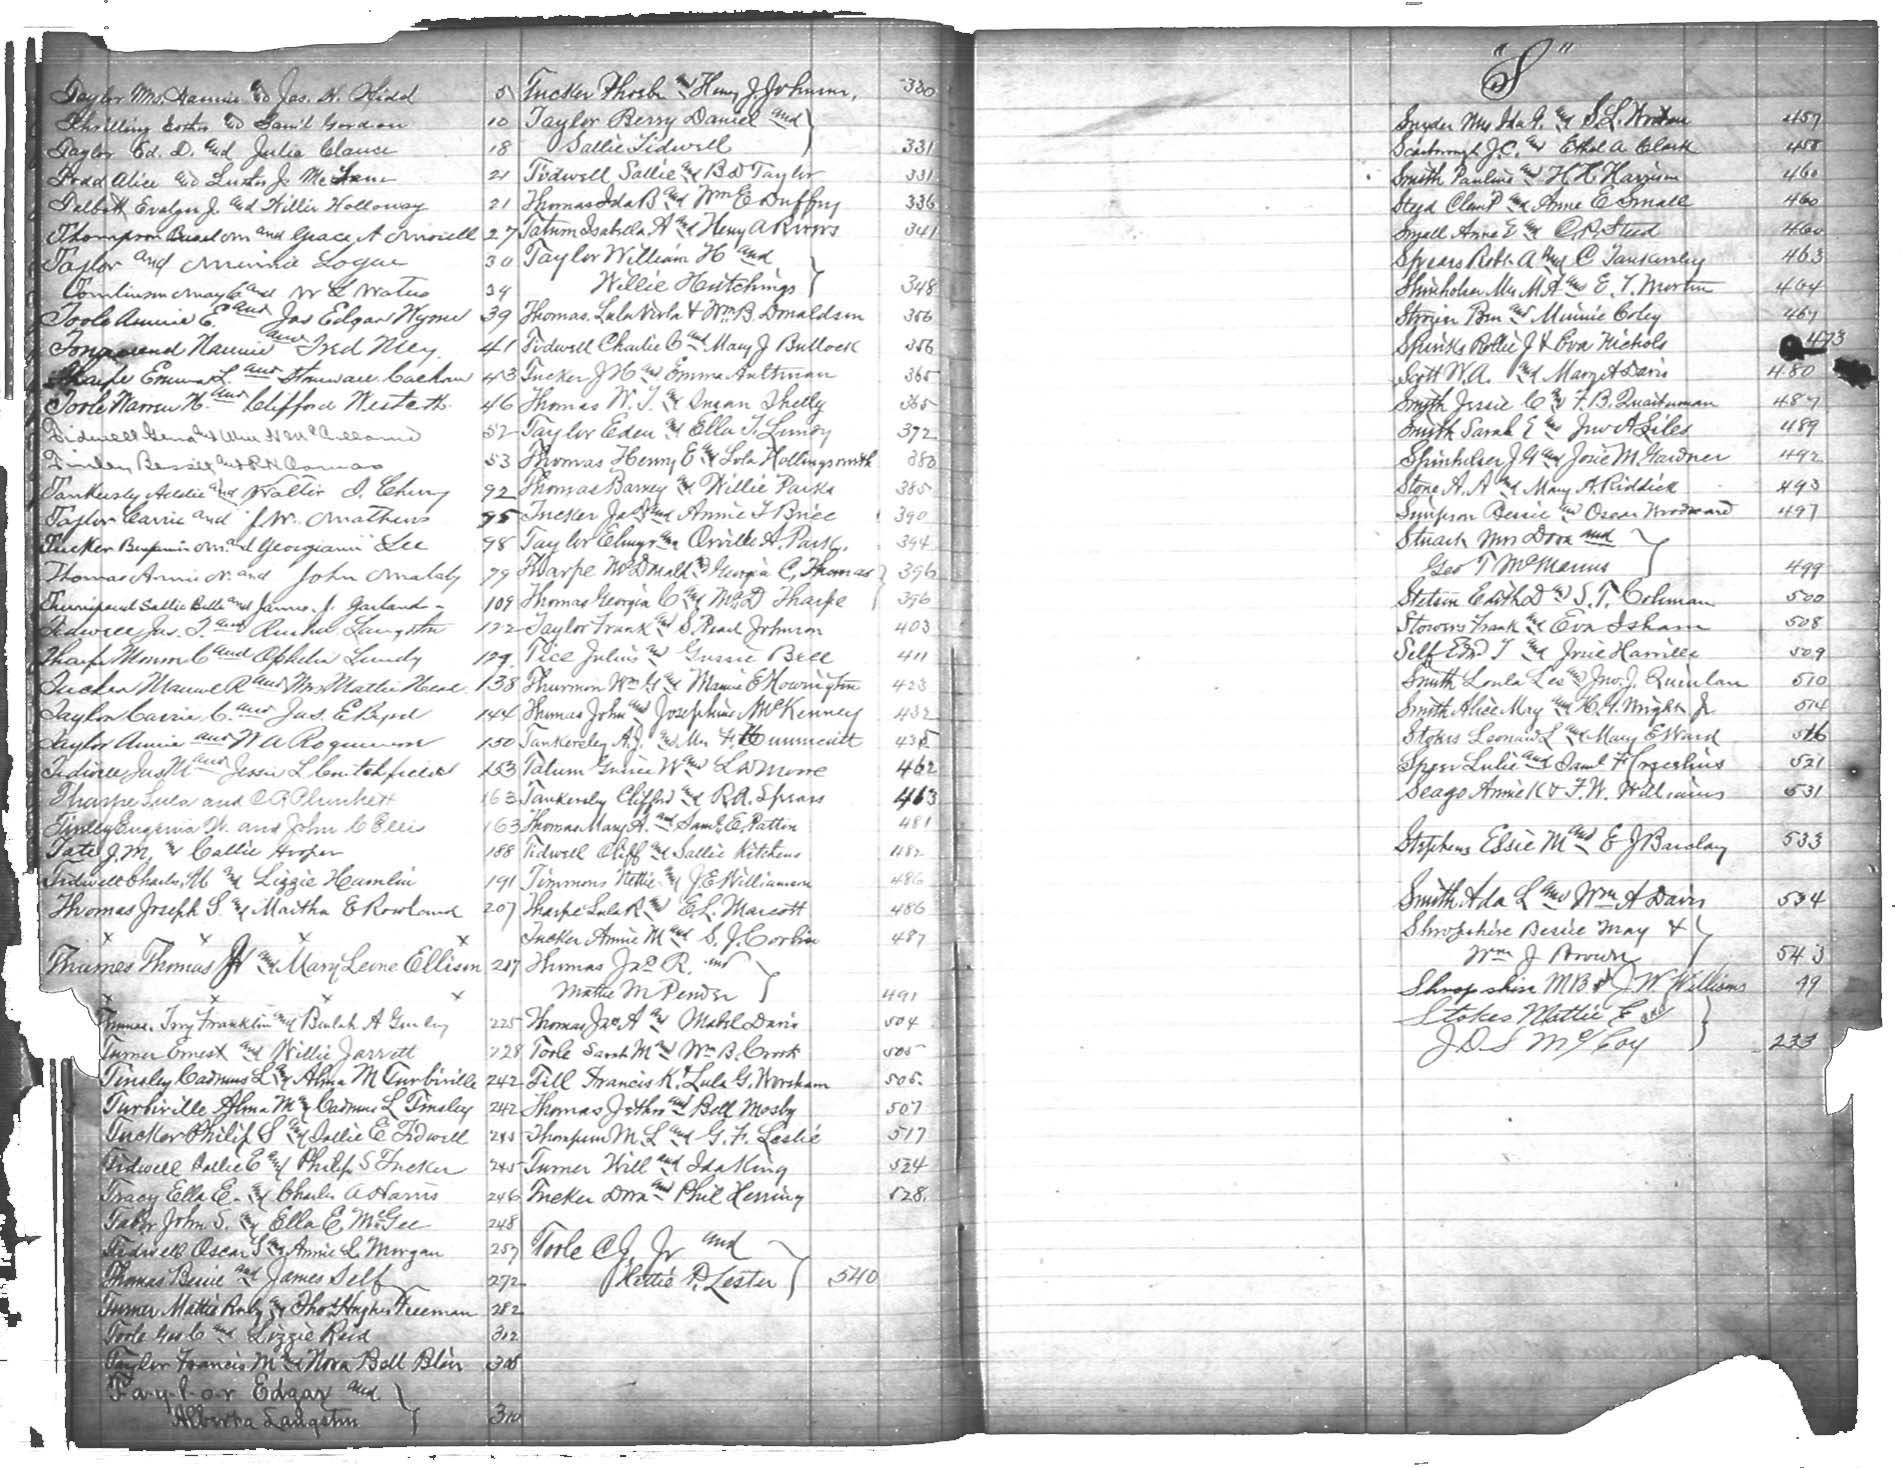 Taylor Mrs. Nannie and Jas. H. Kidd 5
and Saml Gordon 10
Taylor Ed. D. and Julia Clance 18
Todd Alice and Luster J. 21
Talbott Evalyn J. and Willie Holloway 21
Thompson and Grace A 27
Taylor and Minnie Logue 30
Tomlinson May and W L Waters 39
Toole Annie E. and Jas Edgar Wynne 39
Townsend Nannie and Fred Ney 41
Tharpe Emma L. and Stonewall Calhoun 43
Toole Warren H. and Clifford 46
Tidwell and 52
Tinley Bessie and R H 53
Tankersly Addie and Walter J. Cherry 92
Taylor Carrie and J. W. Mathews 95
Tucker Benjamin M. and Georgiann Lee 98
Thomas Annie N. and John 99
Sallie Belle and James J. Garland 109
Tidwell Jas. T. and Langston 122
Tharpe Monroe C and Ophelia Lundy 129
Tucker R and Mrs Mattie Neal 138
Taylor Carrie C. and Jas. E Byrd 144
Taylor Annie and W A Roquemore 150
Tidwell Jas M and Jessie L Crutchfield 153
Tharpe Lula and C R Plunkett 163
Tinley Eugenia W. and John C Ellis 163
Tate J. M. and Callie Hooper 188
Tidwell Charles M and Lizzie Hamlin 191
Thomas Joseph S. and Martha E Rowland 207
x x x x
Thames Thomas Jr and Mary Leone Ellison 217
x x x x
Franklin and Beulah A 225
Turner Ernest and Willie Jarrett 228
Tinsley Cadmus L and Alma M Turbiville 242
Turbiville Alma M and Cadmus L Tinsley 242
Tucker Philip S and Sallie E Tidwell 245
Tidwell Sallie E and Philip S Tucker 245
Tracy Ella E. and Charles A Harris 246
Tabor John S. and Ella E. McGee 248
Tidwell Oscar S and Annie L Morgan 257
Thomas Bessie and James Self 272
Turner Mattie Ruby and Thos Hughes Freeman 282
Toole Geo C and Lizzie Reid 302
Taylor Francis M and Nora Bell Blair 308
T-a-y-l-o-r Edgar and
Alberta Langston 310
Tucker Phoebe and Henry J Johnson, 330
Taylor Berry Daniel and
Sallie Tidwell 331
Tidwell Sallie and B D Taylor 331
Thomas Ida B and Wm E Duffey 336
Tatum Isabella A and Henry A Rivers 341
Taylor William H and
Willie Hutchings 348
Thomas. Lula Viola & Wm B. Donaldson 356
Tidwell Charlie C and Mary J Bullock 356
Tucker J H and Emma Aultman 365
Thomas W. J. and Susan Shelly 365
Taylor Eden and Ella T. Lundy 372
Thomas Henry E and Lola Hollingsworth 380
Thomas Barney and Willie Parks 385
Tucker Jas and Annie T Brice 390
Taylor and Orville A. Park. 394
Tharpe McDonald and Georgia C, Thomas 396
Thomas Georgia C and McD Tharpe 396
Taylor Frank and S. Pearl Johnson 403
Tice Julius and Gussie Bell 411
Thurmon Wm G and Mamie E Howington 423
Thomas John and Josephine McKenney 432
Tankersley A. J. and Mrs 435
Tatum Gussie W and L W Moore 462
Tankersley Clifford and R. A. Spears 463
Thomas Mary A. and Saml. E. Patton 481
Tidwell Cliff and Sallie Kitchens 482
Timmons Nettie and J. E Williamson 486
Tharpe Lula R and E. L. Marcott 486
Tucker Annie M and S. J. Corbin 487
Thomas Jas R. and
Mattie M Pender 491
Thomas Jas. A and Mabel Davis 504
Toole Sarah M and Wm B. Cook 505
Till Francis K. & Lula G. Worsham 505.
Thomas Jethro and Bell Mosby 507
Thompson M. L and G. F. Leslie 517
Turner Will and Ida King 524
Tucker Dora and Phil Herring 528.
Toole C J. Jr and
Hettie P. Lester 540
"S"
Snyder Mrs Ida G. and S. L. 457
Scarborough J. C. and Ethel A Clark 458
Smith Pauline and H. H. Harrison 460
Clem P and Anne E Small 460
Small Anne E and C. P. 460
Spears Robt A and C Tankersley 463
Shinholser Mrs M. A and E. T. Martin 464
Ben and Minnie Coley 467
Spinks Rollie J & Eva Nichols 473
Scott W. A. and Margt Davis 480
Smyth Jessie C and F. B. Quarterman 487
Smith Sarah E and Jno A Liles 489
Shinholser J. G and Josie M. Gardner 492
Stone A. A and Mary A. Riddick 493
Simpson Bessie and Oscar Woodward 497
Stuart Mrs Dora and
Geo T McManus 499
Stetson Edith D and S. T. Coleman 500
Stowers Frank and Eva Isham 508
Self Edw T and Josie Harville 509
Smith Loula Lee and Jno. J. Quinlan 510
Smith Alice May and H. G. Wright Jr 514
Stokes Leonard L and Mary E Ward 516
Speer Lulie and Saml F 521
Seago Annie K & F. W. Williams 531
Stephens Elsie M and E J Barclay 533
Smith Ada L and Wm A Davis 534
Shropshire Bessie May &
Wm J Brown 543
Shropshire M B & J W. Williams 99
Stokes Mattie E and
J D S McCoy 233